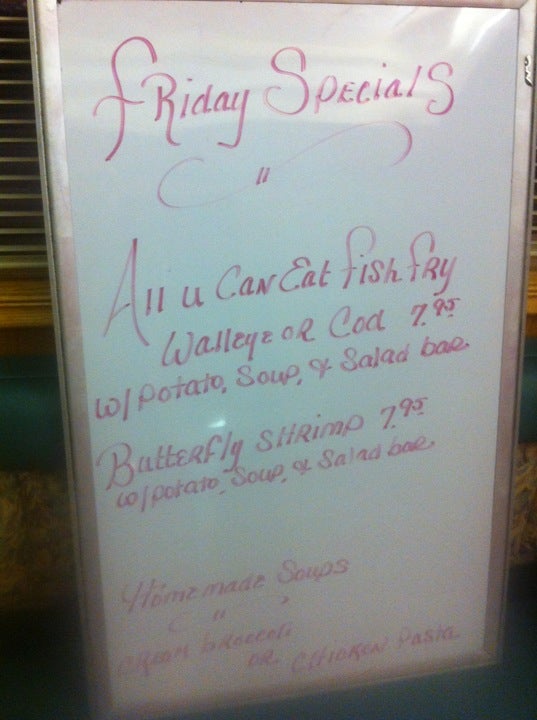 Friday Specials
"
All u Can Eat Fish Fry
Walleye or Cod 7.95
w/potato, Soup, & Salad bar.
Butterfly Shrimp 7.95
w/potato, Soup, & Salad bar.
Homemade Soups
"
Cream Broccoli
or Chicken Pasta